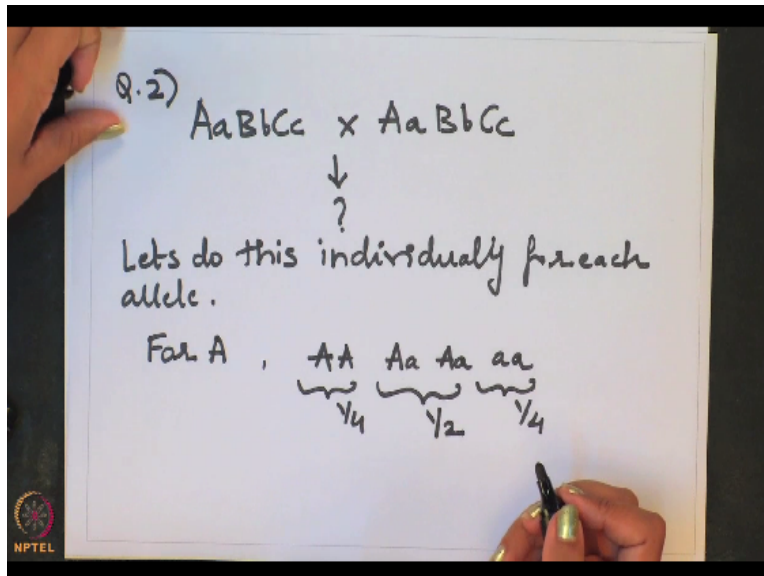 Q.2)
AaBbCc x AaBbCc
↓
?
Lets do this individually for each
allele.
For A , AA Aa Aa aa
1/4 1/2 1/4
NPTEL